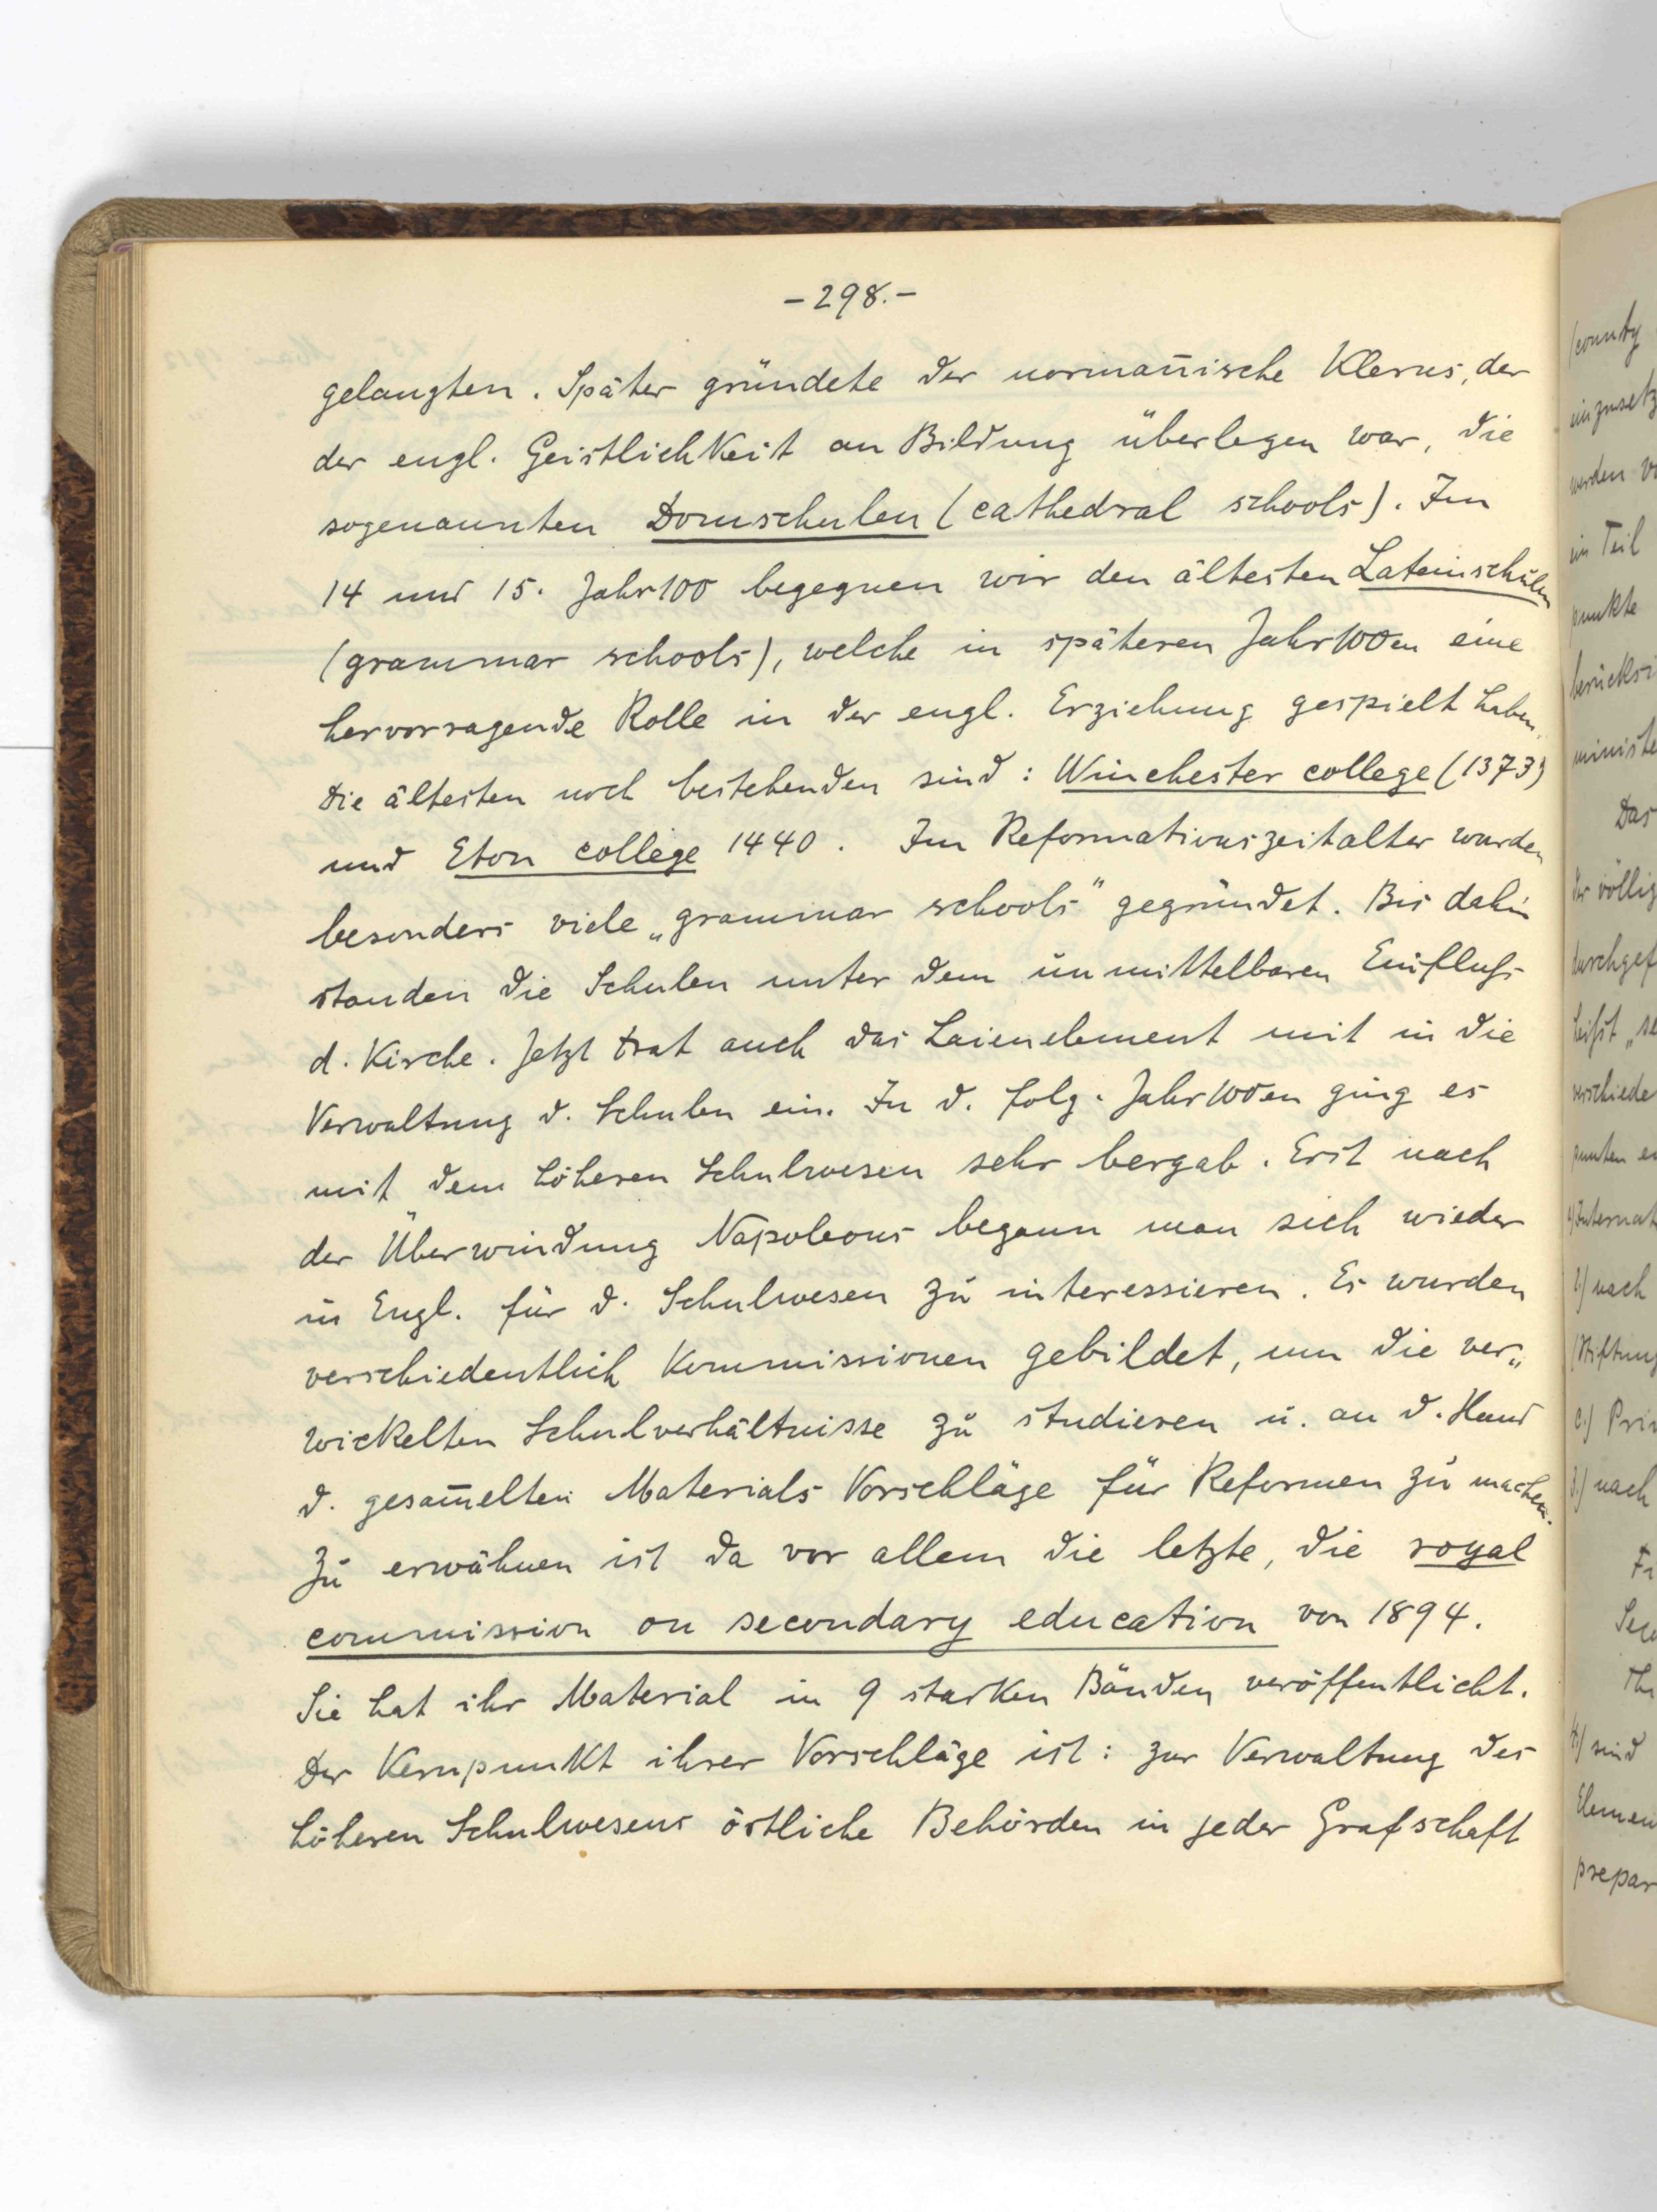 -298.-
gelangten. Später gründete der normañische Klerus, der
der engl. Geistlichkeit an Bildung überlegen war, die
sogenannten Domschulen (cathedral schools). Im
14 und 15. Jahr100 begegnen wir den ältesten Lateinschulen
(grammar schools), welche in späteren Jahr100en eine
hervorragende Rolle in der engl. Erziehung gespielt haben.
Die ältesten noch bestehenden sind: Winchester college (1373)
und Eton college 1440. Im Reformationszeitalter wurden
besonders viele „grammar schools" gegründet. Bis dahin
standen die Schulen unter dem unmittelbaren Einfluß
d. Kirche. Jetzt trat auch das Laienelement mit in die
Verwaltung d. Schulen ein. In d. folg. Jahr100en ging es
mit dem höheren Schulwesen sehr bergab. Erst nach
der Überwindung Napoleons begann man sich wieder
in Engl. für d. Schulwesen zu interessieren. Es wurden
verschiedentlich Kommissionen gebildet, um die ver„
wickelten Schulverhältnisse zu studieren u. an d. Hand
d. gesam̄elten Materials Vorschläge für Reformen zu machen.
Zu erwähnen ist da vor allem die letzte, die royal
commission on secondary education von 1894.
Sie hat ihr Material in 9 starken Bänden veröffentlicht.
Der Kernpunkt ihrer Vorschläge ist: zur Verwaltung des
höheren Schulwesens örtliche Behörden in jeder Grafschaft
(county
einzusetz
werden vo
ein Teil
punkte
berücksi
ministe
Das
der völlig
durchgef
heißt „se
verschiede
2) nach
(Stiftung
c.) Pri
3.) nach
4.) sind
Elemen
prepar